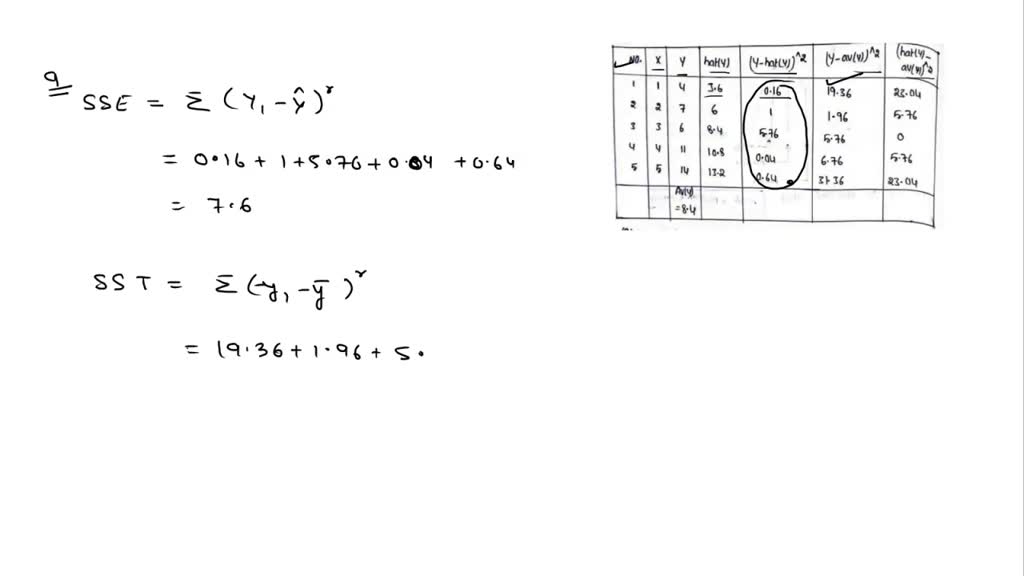 9
SSE = Σ (Y, - ŷ)^r
= 0.16 + 1 + 5.76 + 0.04 + 0.64
= 7.6
SST = Σ (-y, - ȳ)^r
= 19.36 + 1.96 + 5.
NO. X Y hat(Y) (Y-hat(Y))^2 (Y-av(Y))^2 (hat(Y)-av(Y))^2
1 1 4 3.6 0.16 19.36 23.04
2 2 7 6 1 1.96 5.76
3 3 6 8.4 5.76 5.76 0
4 4 11 10.8 0.04 6.76 5.76
5 5 14 13.2 0.64 31.36 23.04
Av(Y)
=8.4